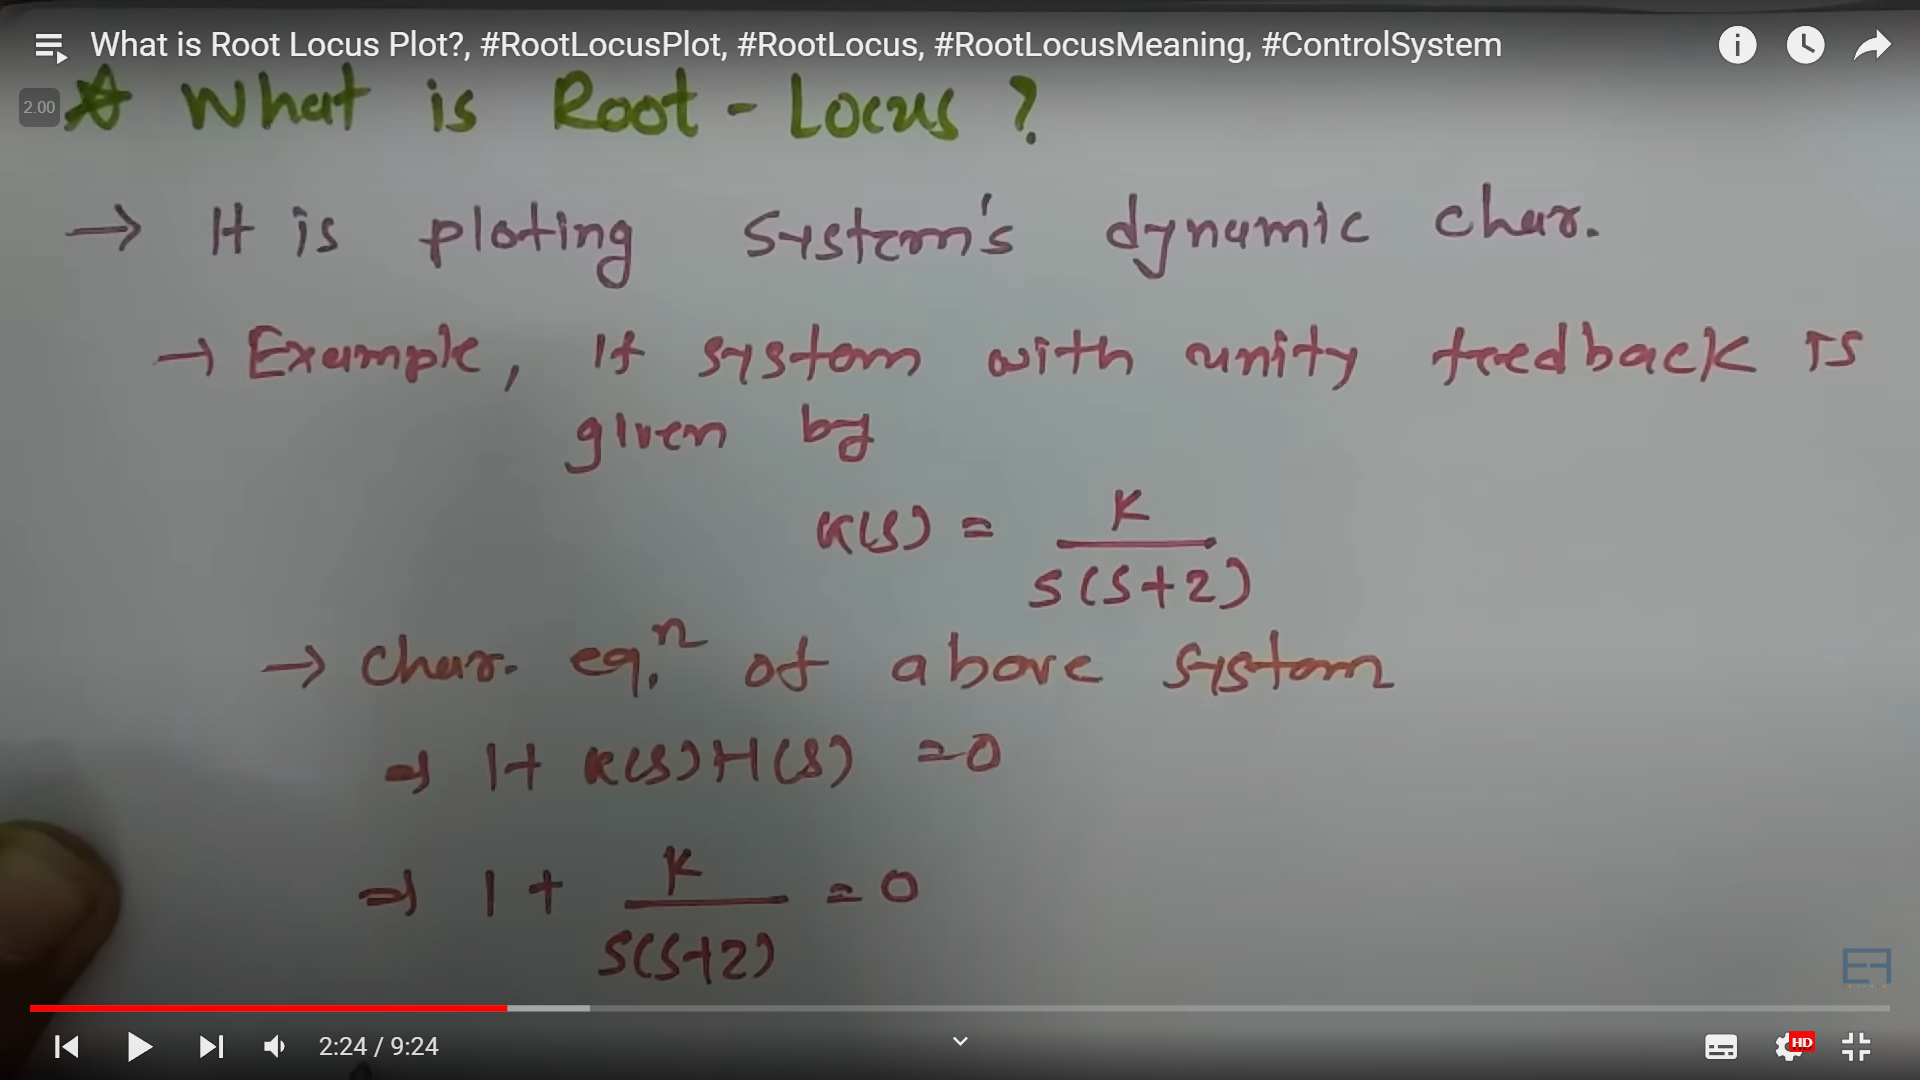 What is Root Locus Plot?, #RootLocusPlot, #RootLocus, #RootLocusMeaning, #ControlSystem
2.00
What is Root - Locus ?
→ It is ploting system's dynamic char.
→ Example, If system with unity feedback is
given by
G(s) = K / S(S+2)
→ Char. eq.ⁿ of above system
⇒ 1 + G(s)H(s) = 0
⇒ 1 + K / S(S+2) = 0
EF
2:24 / 9:24
HD